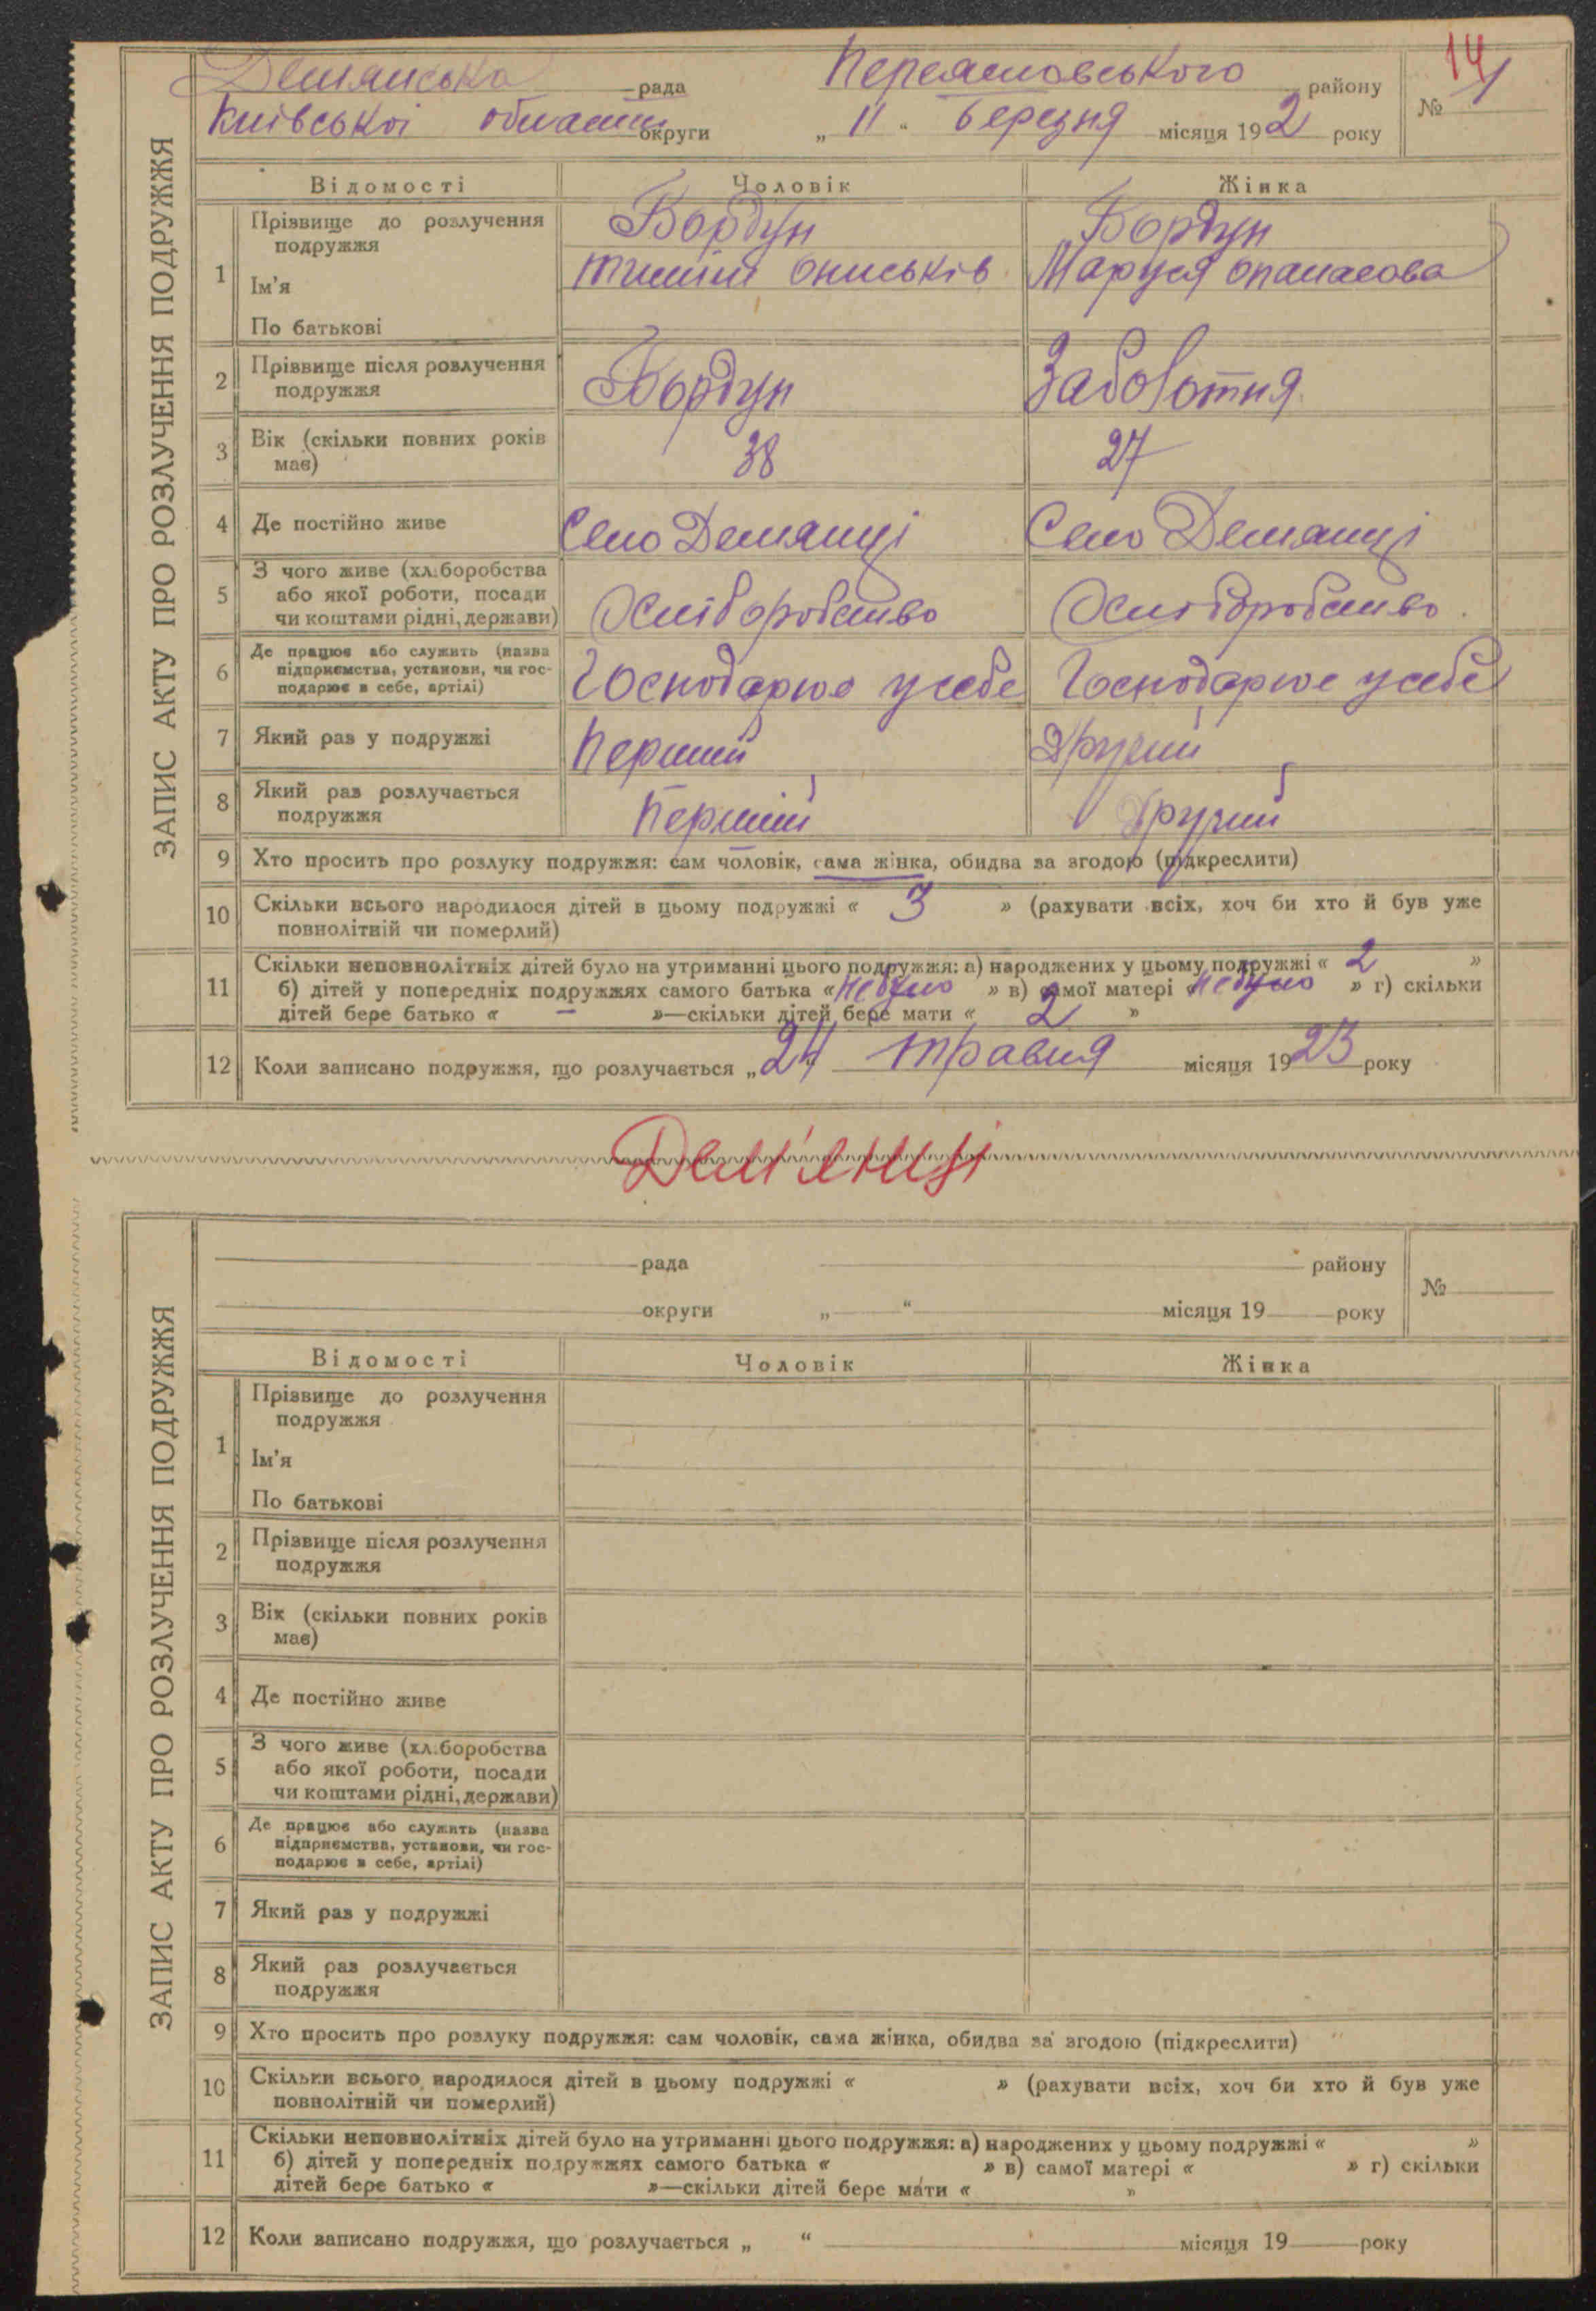 ЗАПИС АКТУ ПРО РОЗЛУЧЕННЯ ПОДРУЖЖЯ
Демянська рада Переяславського району
№ 1
14
Київської области округи „ 11 “ березня місяця 192 року
Відомості Чоловік Жінка
1 Прізвище до розлучення подружжя Бордун Бордун
Ім'я Ониськів Маруся Опанасова
По батькові
2 Прізвище після розлучення подружжя Бордун Заболотня
3 Вік (скільки повних років має) 38 27
4 Де постійно живе Село Демянці Село Демянці
5 З чого живе (хліборобства або якої роботи, посади чи коштами рідні, держави) Хліборобство Хліборобство
6 Де працює або служить (назва підприємства, установи, чи господарює в себе, артілі) Господарює усебе Господарює усебе
7 Який раз у подружжі Перший Другий
8 Який раз розлучається подружжя Перший Другий
9 Хто просить про розлуку подружжя: сам чоловік, сама жінка, обидва за згодою (підкреслити)
10 Скільки всього народилося дітей в цьому подружжі « 3 » (рахувати всіх, хоч би хто й був уже
повнолітній чи померлий)
11 Скільки неповнолітніх дітей було на утриманні цього подружжя: а) народжених у цьому подружжі « 2 »
б) дітей у попередніх подружжях самого батька « небуло » в) самої матері « небуло » г) скільки
дітей бере батько « – »—скільки дітей бере мати « 2 »
12 Коли записано подружжя, що розлучається „ 24 травня місяця 1923 року
Дем'янці
ЗАПИС АКТУ ПРО РОЗЛУЧЕННЯ ПОДРУЖЖЯ
рада району
№
округи „ “ місяця 19 року
Відомості Чоловік Жінка
1 Прізвище до розлучення
подружжя
Ім'я
По батькові
2 Прізвище після розлучення
подружжя
3 Вік (скільки повних років
має)
4 Де постійно живе
5 З чого живе (хл.боробства
або якої роботи, посади
чи коштами рідні, держави)
6 Де працює або служить (назва
підприємства, установи, чи гос-
подарює в себе, артілі)
7 Який раз у подружжі
8 Який раз розлучається
подружжя
9 Хто просить про розлуку подружжя: сам чоловік, сама жінка, обидва за згодою (підкреслити)
10 Скільки всього народилося дітей в цьому подружжі « » (рахувати всіх, хоч би хто й був уже
повнолітній чи померлий)
11 Скільки неповнолітніх дітей було на утриманні цього подружжя: а) народжених у цьому подружжі « »
б) дітей у попередніх подружжях самого батька « » в) самої матері « » г) скільки
дітей бере батько « »—скільки дітей бере мати « »
12 Коли записано подружжя, що розлучається „ “ місяця 19 року